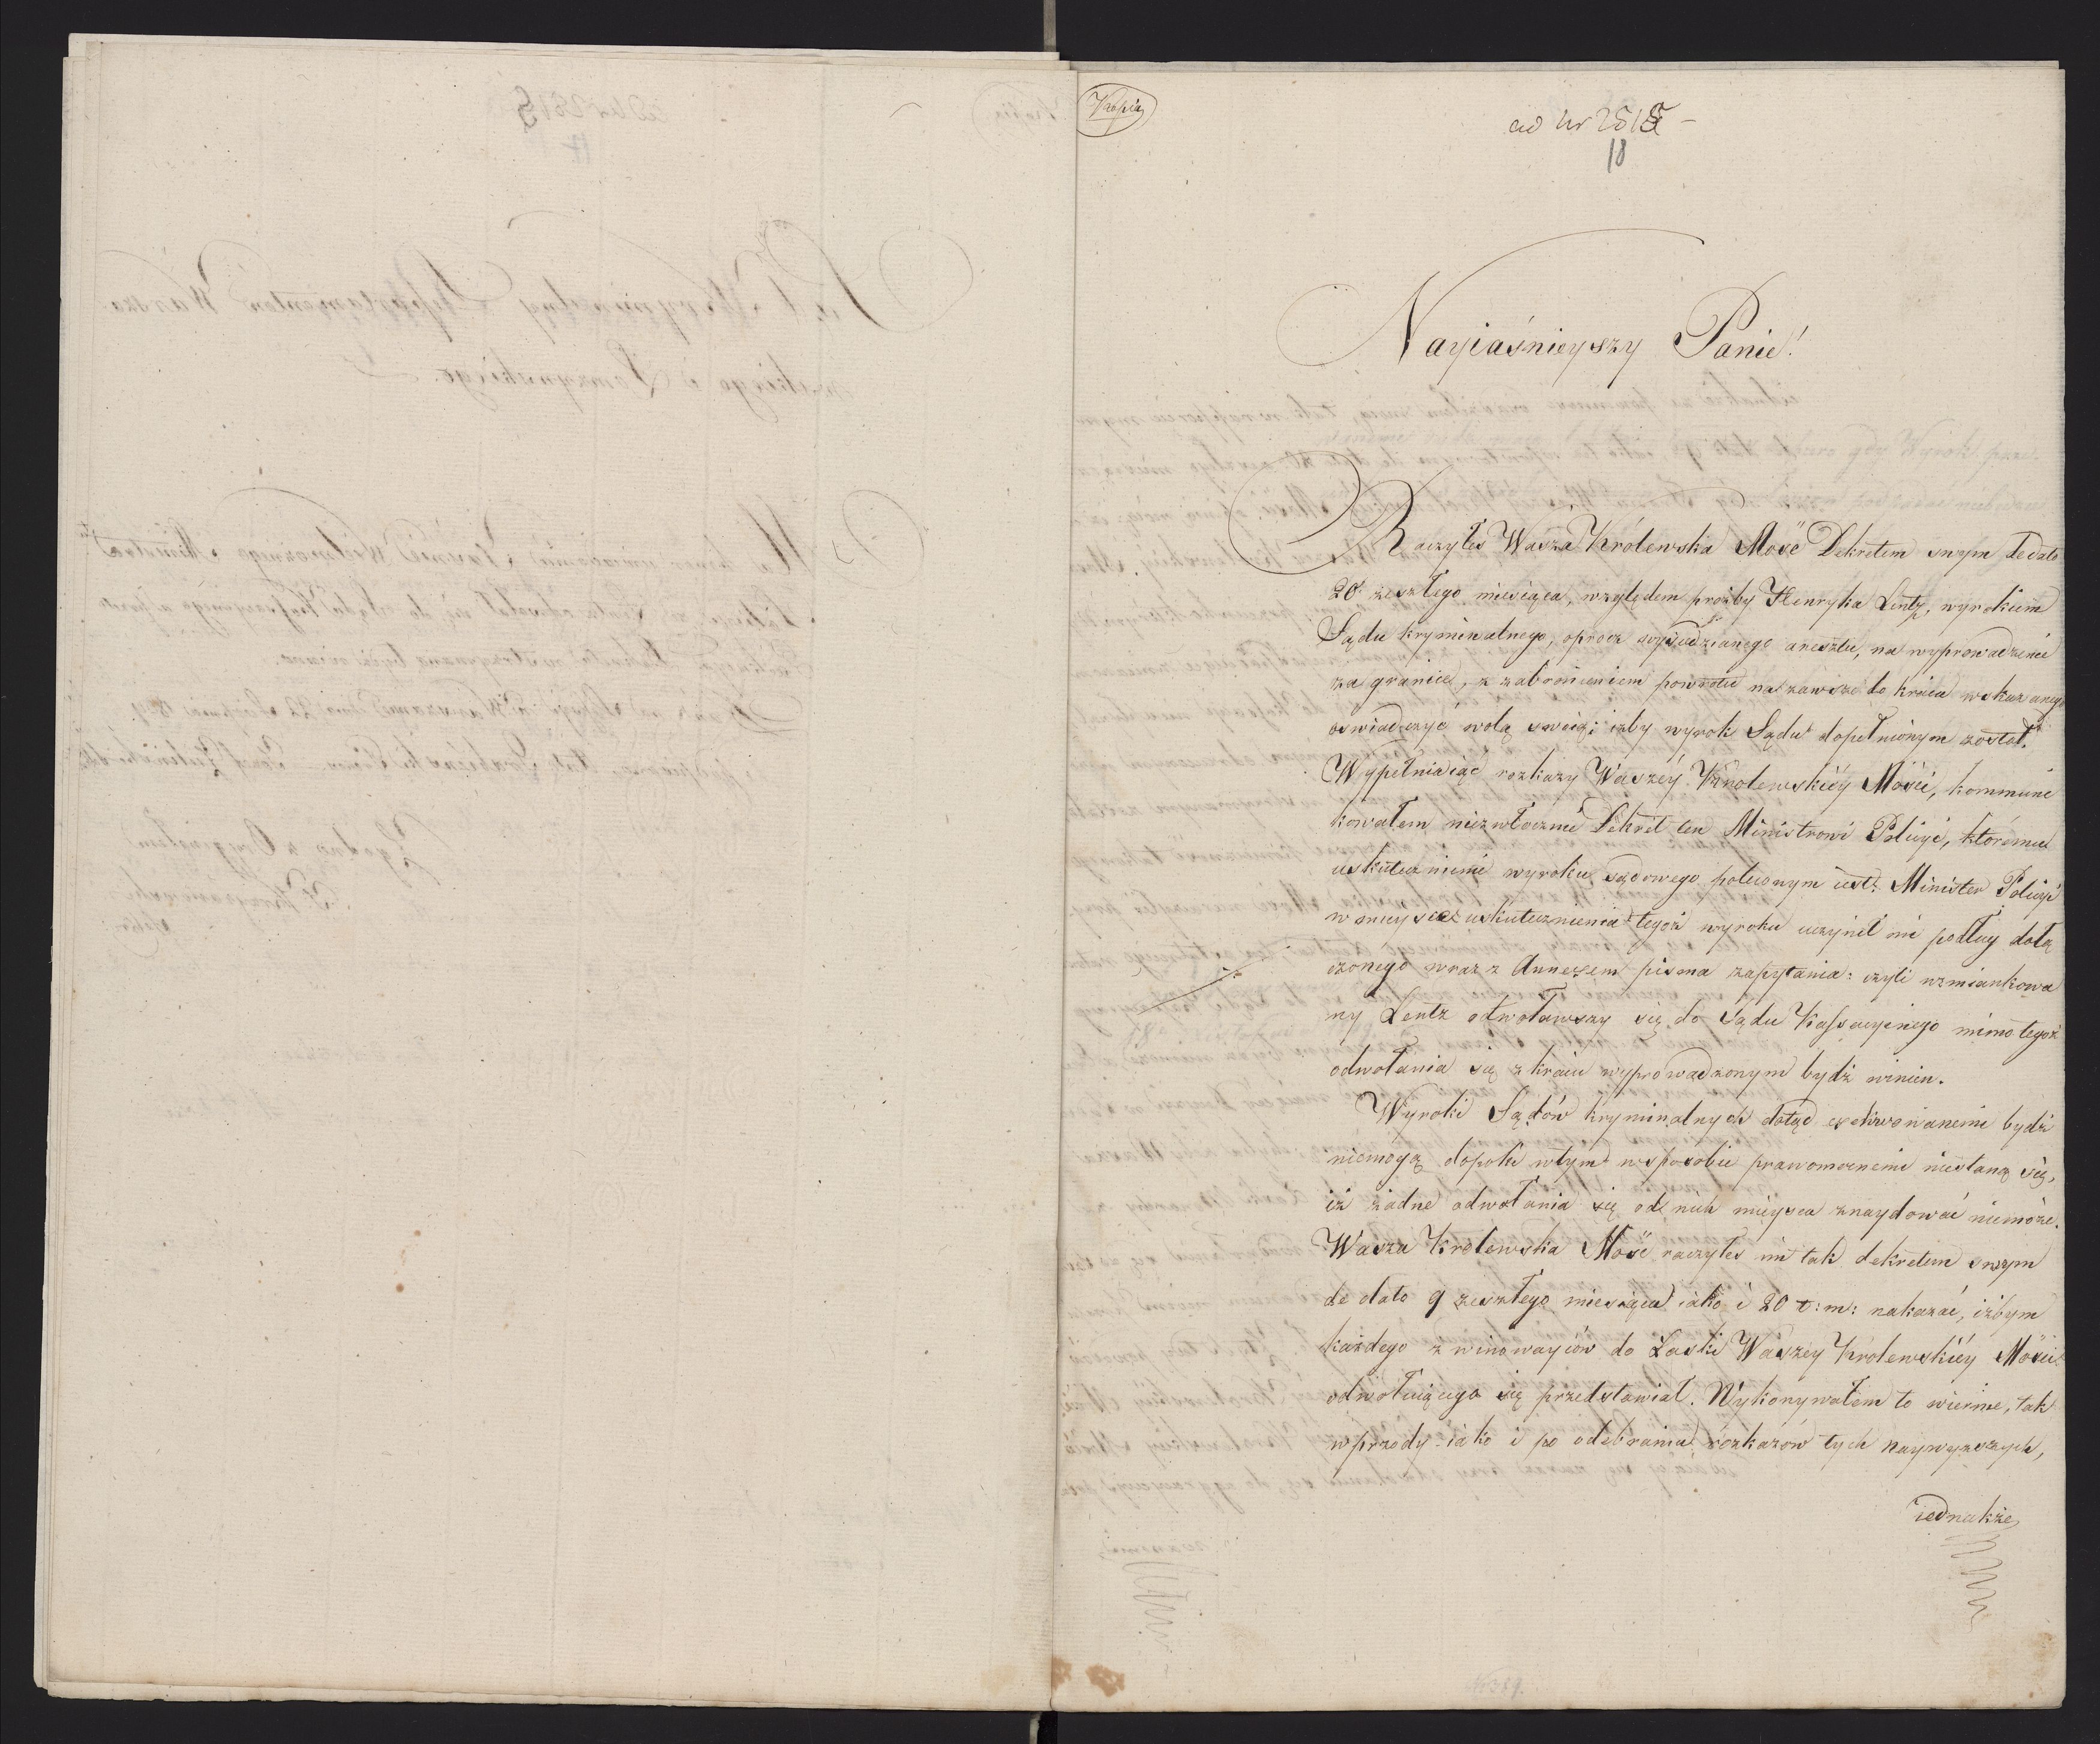 Kopia
ad Nr 2515
18
Nayiaśnieyszy Panie!
Raczyłeś Wasza Królewska Mość Dekretem swym de dato
20. zeszłego miesiąca, względem prośby Henryka Lentz, wyrokiem
Sądu kryminalnego, oprocz wysiedzianego aresztu, na wyprowadzenie
za granicę, z zabronieniem powrotu na zawsze do kraiu wskazanego
oswiadczyć wolą swoią; iżby wyrok Sądu dopełnionym został.
Wypełniaiąc rozkazy Waszéy Krolewskiéy Mości, kommuni
kowałem niezwłocznie Dekret ten Ministrowi Policyi, ktoremu
uskutecznienie wyroku sądowego poleconym iest. Minister Policyi
w mieysce uskutecznienia tegoż wyroku uczynił mi podług dołą
czonego wraz z Annexem pisma zapytania: czyli wzmiankowa
ny Lentz odwoławszy się do Sądu Kassacyinego mimo tegoż
odwołania się z kraiu wyprowadzonym bydź winien.
Wyroki Sądów kryminalnych dotąd exekwowanemi bydź
niemogą dopoki w tym w sposobie prawomocnemi niestaną się,
iż żadne odwołania się od nich mieysca znaydować niemoże.
Wasza Królewska Mość raczyłeś mi tak dekretem swym
de dato 9 zeszłego miesiąca iako i 20 t: m: nakazać, iżbym
każdego z winowayców do Łaski Waszey Królewskiéy Mości
odwołuiącego się przedstawiał. Wykonywałem to wiernie, tak
wprzody iako i po odebraniu rozkazów tych naywyzszych,
iednakże